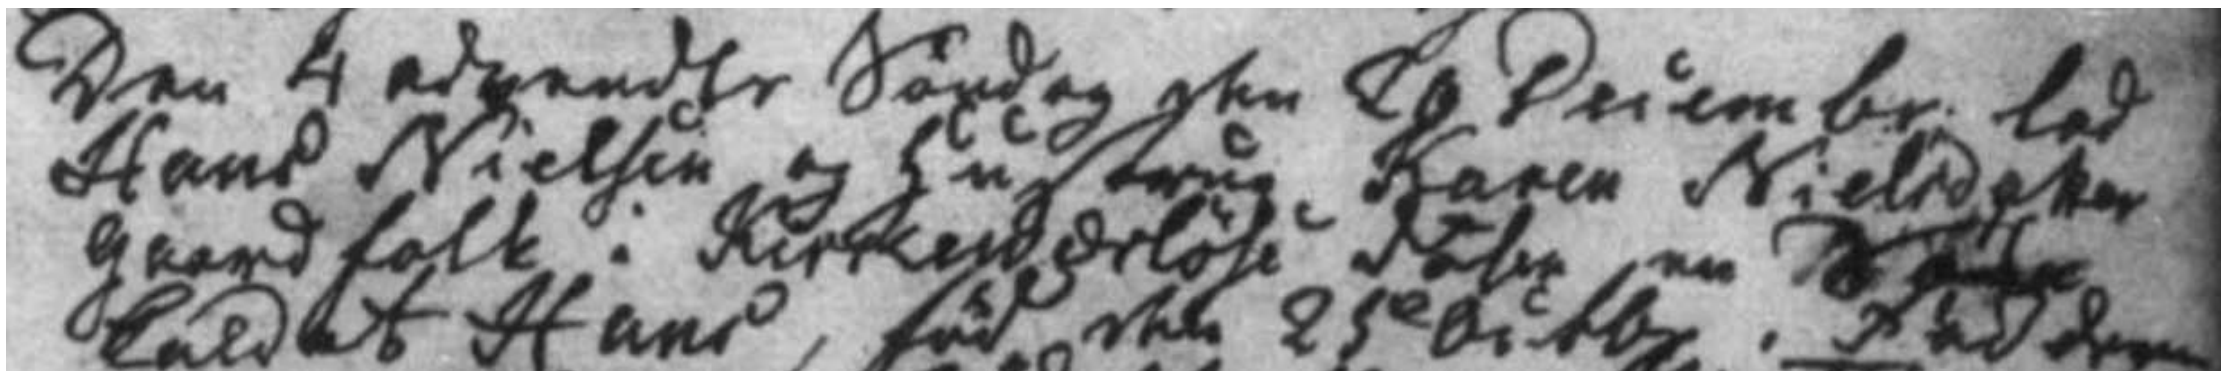 Den 4 advendts Söndag den 20 Decembr. lod
Hans Nielsen og Hustrue Karen Nielsdatter
gaardfolk i Kirkeværløse döbe en Sön
kaldet Hans, föd den 25 Octobr. Fadderne